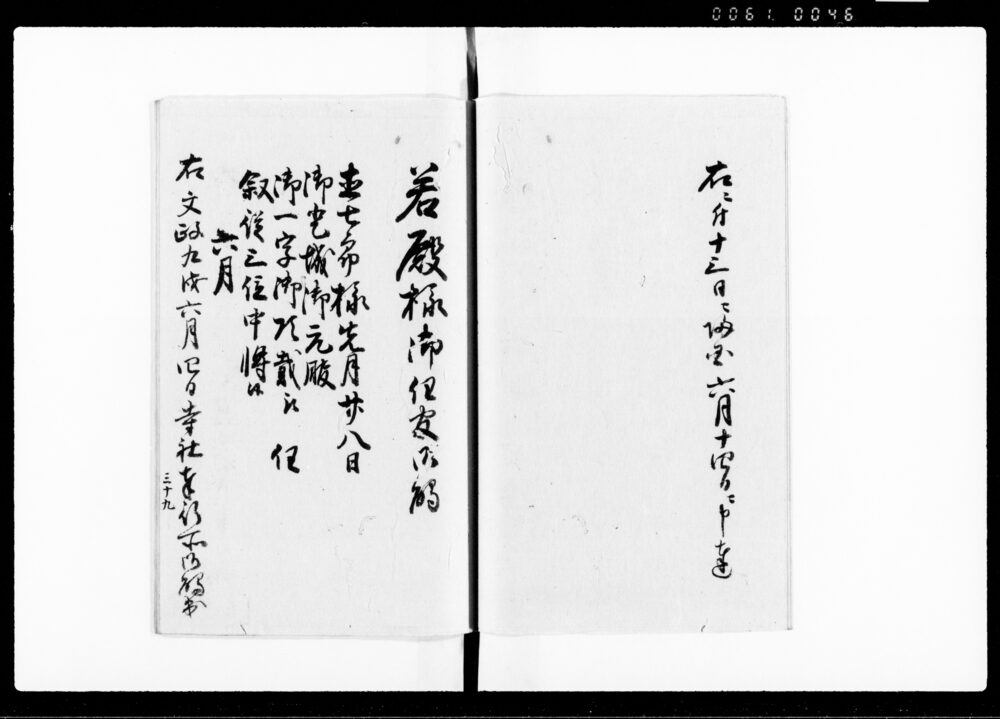 0061. 0046
右二付十三日ニ帰宅六月十四日ニ申達
若殿様御任官御触
直七郎様先月廿八日
御登城御元服
御一字御頂戴被 任
叙従三位中将候
六月
右文政九戌六月四日寺社奉行所御触書
三十九